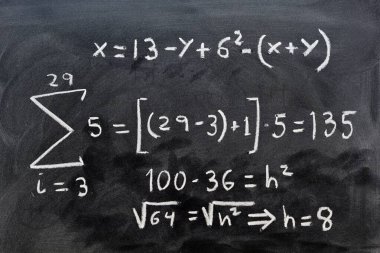 x = 13 - y + 6² - (x + y)
29
∑ 5 = [(29 - 3) + 1] · 5 = 135
i = 3
100 - 36 = h²
√64 = √h² ⇒ h = 8